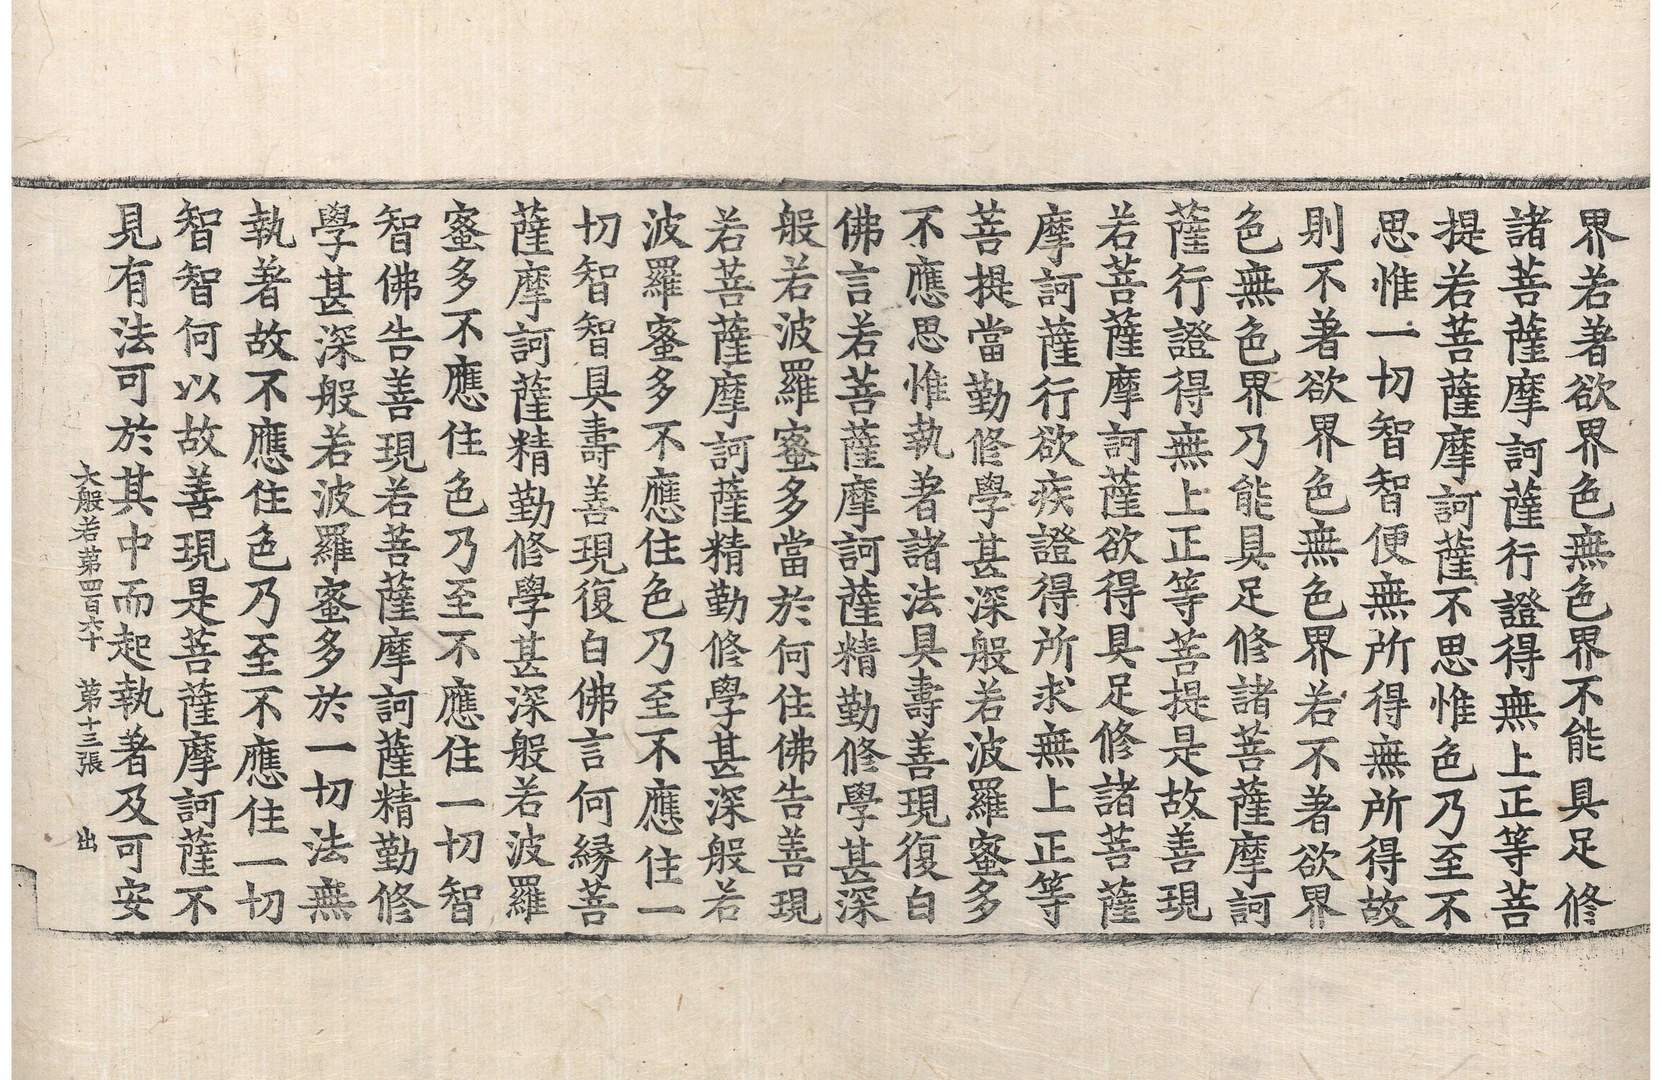 界若著欲界色無色界不能具足修
諸菩薩摩訶薩行證得無上正等菩
提若菩薩摩訶薩不思惟色乃至不
思惟一切智智便無所得無所得故
則不著欲界色無色界若不著欲界
色無色界乃能具足修諸菩薩摩訶
薩行證得無上正等菩提是故善現
若菩薩摩訶薩欲得具足修諸菩薩
摩訶薩行欲疾證得所求無上正等
菩提當勤修學甚深般若波羅蜜多
不應思惟執著諸法具壽善現復白
佛言若菩薩摩訶薩精勤修學甚深
般若波羅蜜多當於何住佛告善現
若菩薩摩訶薩精勤修學甚深般若
波羅蜜多不應住色乃至不應住一
切智智具壽善現復白佛言何緣菩
薩摩訶薩精勤修學甚深般若波羅
蜜多不應住色乃至不應住一切智
智佛告善現若菩薩摩訶薩精勤修
學甚深般若波羅蜜多於一切法無
執著故不應住色乃至不應住一切
智智何以故善現是菩薩摩訶薩不
見有法可於其中而起執著及可安
大般若第四百六十 第十三張 出